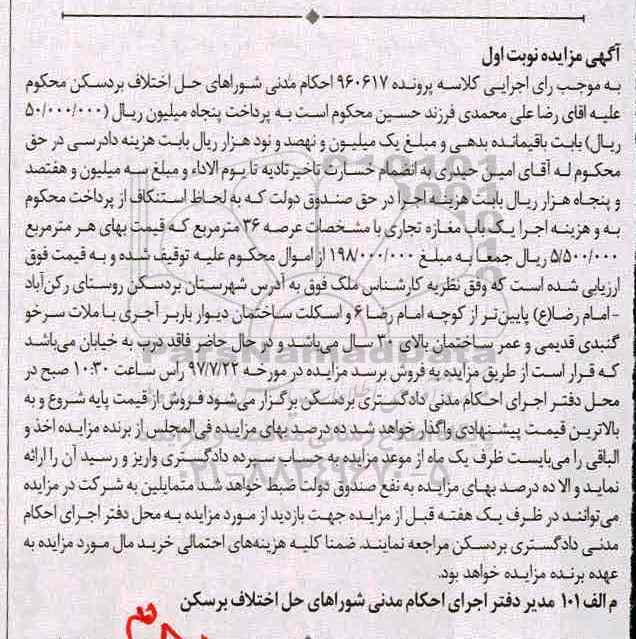 آگهی مزایده نوبت اول
به موجب رای اجرایی کلاسه پرونده ۹۶۰۶۱۷ احکام مدنی شوراهای حل اختلاف بردسکن محکوم
علیه اقای رضا علی محمدی فرزند حسین محکوم است به پرداخت پنجاه میلیون ریال (۵۰/۰۰۰/۰۰۰
ریال) بابت باقیمانده بدهی و مبلغ یک میلیون و نهصد و نود هزار ریال بابت هزینه دادرسی در حق
محکوم له آقای امین حیدری به انضمام خسارت تاخیر تادیه تا یوم الاداء و مبلغ سه میلیون و هفتصد
و پنجاه هزار ریال بابت هزینه اجرا در حق صندوق دولت که به لحاظ استنکاف از پرداخت محکوم
به و هزینه اجرا یک باب مغازه تجاری با مشخصات عرصه ۳۶ مترمربع که قیمت بهای هر مترمربع
۵/۵۰۰/۰۰۰ ریال جمعا به مبلغ ۱۹۸/۰۰۰/۰۰۰ از اموال محکوم علیه توقیف شده و به قیمت فوق
ارزیابی شده است که وفق نظریه کارشناس ملک فوق به آدرس شهرستان بردسکن روستای رکن‌آباد
- امام رضا(ع) پایین‌تر از کوچه امام رضا ۶ و اسکلت ساختمان دیوار باربر آجری با ملات سرخو
گنبدی قدیمی و عمر ساختمان بالای ۳۰ سال می‌باشد و در حال حاضر فاقد درب به خیابان می‌باشد
که قرار است از طریق مزایده به فروش برسد مزایده در مورخه ۹۷/۷/۲۲ راس ساعت ۱۰:۳۰ صبح در
محل دفتر اجرای احکام مدنی دادگستری بردسکن برگزار می‌شود فروش از قیمت پایه شروع و به
بالاترین قیمت پیشنهادی واگذار خواهد شد ده درصد بهای مزایده فی‌المجلس از برنده مزایده اخذ و
الباقی را می‌بایست ظرف یک ماه از موعد مزایده به حساب سپرده دادگستری واریز و رسید آن را ارائه
نماید و الا ده درصد بهای مزایده به نفع صندوق دولت ضبط خواهد شد متمایلین به شرکت در مزایده
می‌توانند در ظرف یک هفته قبل از مزایده جهت بازدید از مورد مزایده به محل دفتر اجرای احکام
مدنی دادگستری بردسکن مراجعه نمایند. ضمنا کلیه هزینه‌های احتمالی خرید مال مورد مزایده به
عهده برنده مزایده خواهد بود.
م الف ۱۰۱ مدیر دفتر اجرای احکام مدنی شوراهای حل اختلاف برسکن